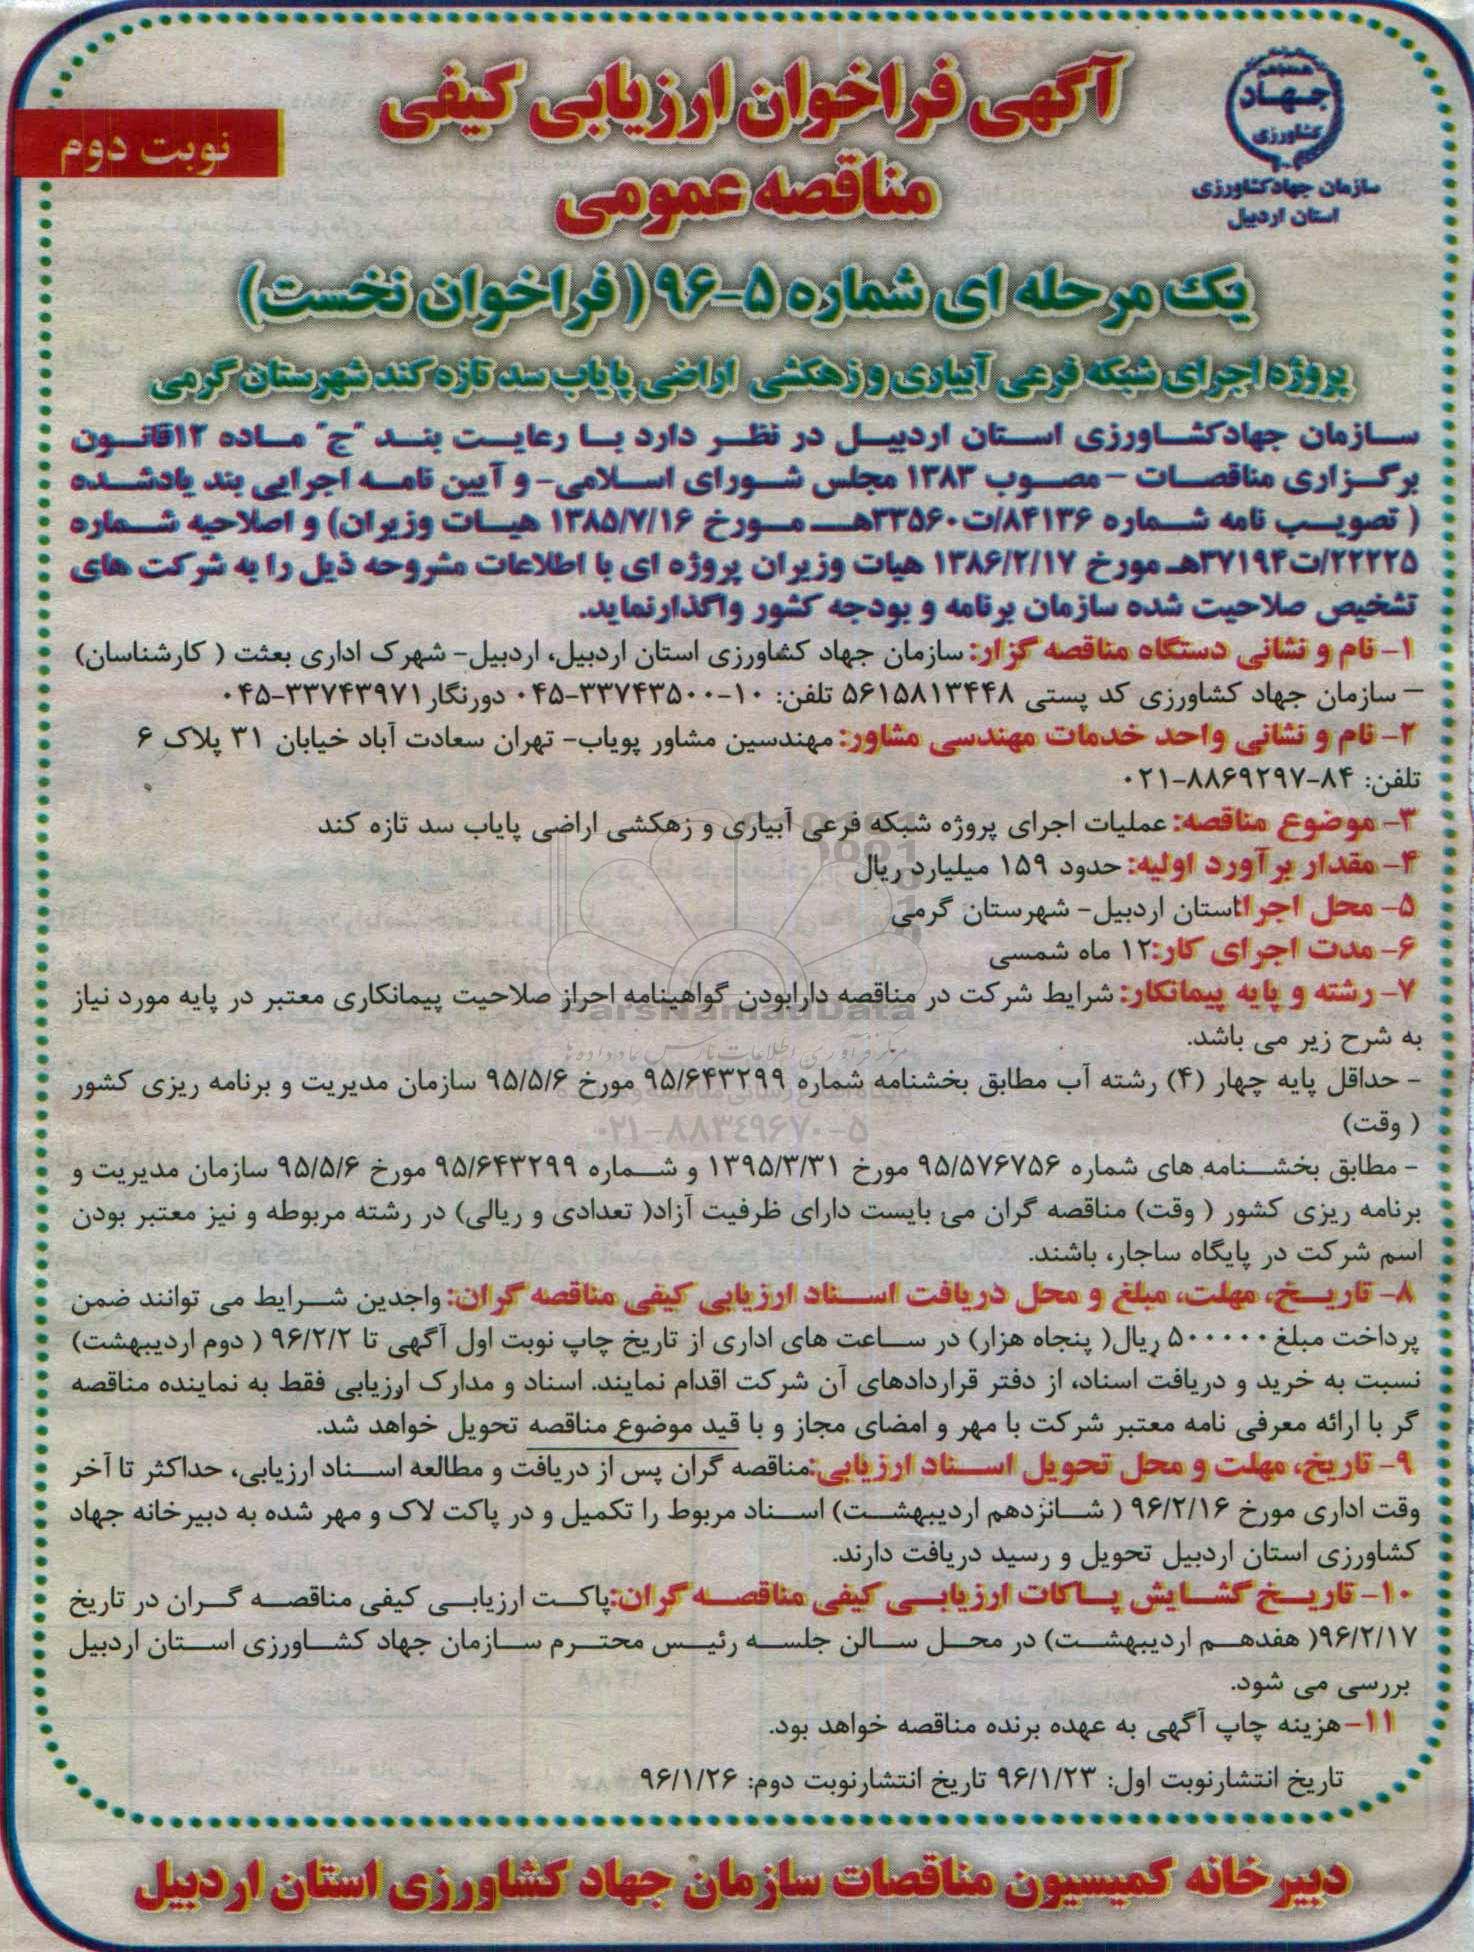 جهاد
کشاورزی
سازمان جهادکشاورزی
استان اردبیل
نوبت دوم
آگهی فراخوان ارزیابی کیفی
مناقصه عمومی
یک مرحله ای شماره ۵-۹۶ ( فراخوان نخست)
پروژه اجرای شبکه فرعی آبیاری و زهکشی اراضی پایاب سد تازه کند شهرستان گرمی
سازمان جهادکشاورزی استان اردبیل در نظر دارد با رعایت بند "ج" ماده ۱۲قانون
برگزاری مناقصات – مصوب ۱۳۸۳ مجلس شورای اسلامی- و آیین نامه اجرایی بند یادشده
( تصویب نامه شماره ۸۴۱۳۶/ت۳۳۵۶۰هـ مورخ ۱۳۸۵/۷/۱۶ هیات وزیران) و اصلاحیه شماره
۲۲۲۲۵/ت۳۷۱۹۴هـ مورخ ۱۳۸۶/۲/۱۷ هیات وزیران پروژه ای با اطلاعات مشروحه ذیل را به شرکت های
تشخیص صلاحیت شده سازمان برنامه و بودجه کشور واگذارنماید.
۱- نام و نشانی دستگاه مناقصه گزار: سازمان جهاد کشاورزی استان اردبیل، اردبیل- شهرک اداری بعثت ( کارشناسان)
– سازمان جهاد کشاورزی کد پستی ۵۶۱۵۸۱۳۴۴۸ تلفن: ۱۰-۳۳۷۴۳۵۰۰-۰۴۵ دورنگار ۳۳۷۴۳۹۷۱-۰۴۵
۲- نام و نشانی واحد خدمات مهندسی مشاور: مهندسین مشاور پویاب- تهران سعادت آباد خیابان ۳۱ پلاک ۶
تلفن: ۸۴-۸۸۶۹۲۹۷-۰۲۱
۳- موضوع مناقصه: عملیات اجرای پروژه شبکه فرعی آبیاری و زهکشی اراضی پایاب سد تازه کند
۴- مقدار برآورد اولیه: حدود ۱۵۹ میلیارد ریال
۵- محل اجرا: استان اردبیل- شهرستان گرمی
۶- مدت اجرای کار: ۱۲ ماه شمسی
۷- رشته و پایه پیمانکار: شرایط شرکت در مناقصه دارابودن گواهینامه احراز صلاحیت پیمانکاری معتبر در پایه مورد نیاز
ParsNamadData
به شرح زیر می باشد.
مرکز فرآوری اطلاعات پارس نماد داده ها
- حداقل پایه چهار (۴) رشته آب مطابق بخشنامه شماره ۹۵/۶۴۳۲۹۹ مورخ ۹۵/۵/۶ سازمان مدیریت و برنامه ریزی کشور
پایگاه اطلاع رسانی مناقصه و مزایده
( وقت)
۰۲۱-۸۸۳۴۹۶۷۰-۵
- مطابق بخشنامه های شماره ۹۵/۵۷۶۷۵۶ مورخ ۱۳۹۵/۳/۳۱ و شماره ۹۵/۶۴۳۲۹۹ مورخ ۹۵/۵/۶ سازمان مدیریت و
برنامه ریزی کشور ( وقت) مناقصه گران می بایست دارای ظرفیت آزاد( تعدادی و ریالی) در رشته مربوطه و نیز معتبر بودن
اسم شرکت در پایگاه ساجار، باشند.
۸- تاریخ، مهلت، مبلغ و محل دریافت اسناد ارزیابی کیفی مناقصه گران: واجدین شرایط می توانند ضمن
پرداخت مبلغ ۵۰۰۰۰۰ ریال( پنجاه هزار) در ساعت های اداری از تاریخ چاپ نوبت اول آگهی تا ۹۶/۲/۲ ( دوم اردیبهشت)
نسبت به خرید و دریافت اسناد، از دفتر قراردادهای آن شرکت اقدام نمایند. اسناد و مدارک ارزیابی فقط به نماینده مناقصه
گر با ارائه معرفی نامه معتبر شرکت با مهر و امضای مجاز و با قید موضوع مناقصه تحویل خواهد شد.
۹- تاریخ، مهلت و محل تحویل اسناد ارزیابی: مناقصه گران پس از دریافت و مطالعه اسناد ارزیابی، حداکثر تا آخر
وقت اداری مورخ ۹۶/۲/۱۶ ( شانزدهم اردیبهشت) اسناد مربوط را تکمیل و در پاکت لاک و مهر شده به دبیرخانه جهاد
کشاورزی استان اردبیل تحویل و رسید دریافت دارند.
۱۰- تاریخ گشایش پاکات ارزیابی کیفی مناقصه گران: پاکت ارزیابی کیفی مناقصه گران در تاریخ
۹۶/۲/۱۷( هفدهم اردیبهشت) در محل سالن جلسه رئیس محترم سازمان جهاد کشاورزی استان اردبیل
بررسی می شود.
۱۱- هزینه چاپ آگهی به عهده برنده مناقصه خواهد بود.
تاریخ انتشارنوبت اول: ۹۶/۱/۲۳ تاریخ انتشارنوبت دوم: ۹۶/۱/۲۶
دبیرخانه کمیسیون مناقصات سازمان جهاد کشاورزی استان اردبیل